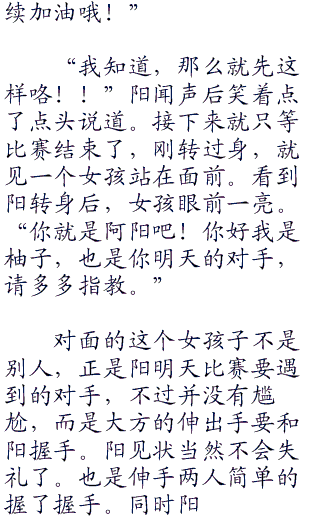 续加油哦！”
“我知道，那么就先这
样咯！！”阳闻声后笑着点
了点头说道。接下来就只等
比赛结束了，刚转过身，就
见一个女孩站在面前。看到
阳转身后，女孩眼前一亮。
“你就是阿阳吧！你好我是
柚子，也是你明天的对手，
请多多指教。”
对面的这个女孩子不是
别人，正是阳明天比赛要遇
到的对手，不过并没有尴
尬，而是大方的伸出手要和
阳握手。阳见状当然不会失
礼了。也是伸手两人简单的
握了握手。同时阳